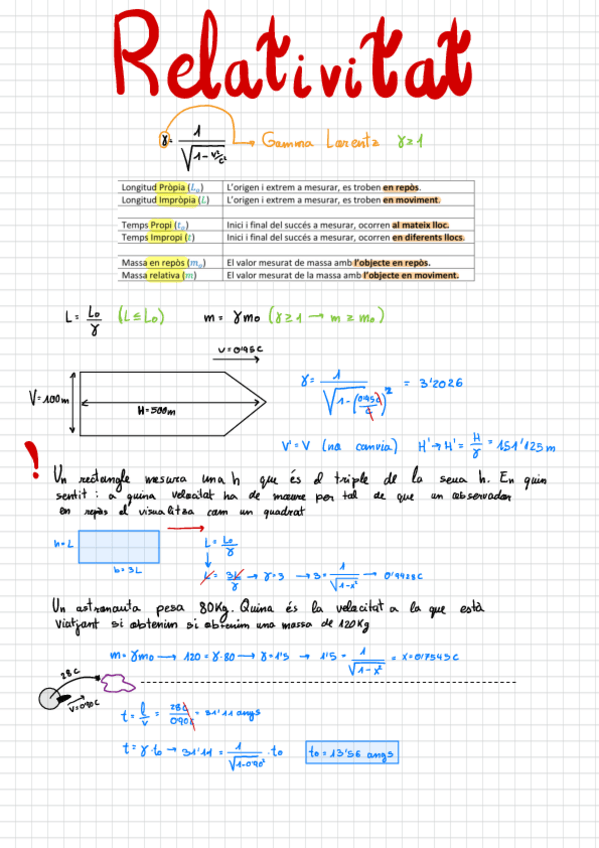 Relativitat
γ = 1 / √(1 - v²/c²) → Gamma Lorentz γ ≥ 1
Longitud Pròpia (L₀) L'origen i extrem a mesurar, es troben en repòs.
Longitud Impròpia (L) L'origen i extrem a mesurar, es troben en moviment.
Temps Propi (t₀) Inici i final del succés a mesurar, ocorren al mateix lloc.
Temps Impropi (t) Inici i final del succés a mesurar, ocorren en diferents llocs.
Massa en repòs (m₀) El valor mesurat de massa amb l'objecte en repòs.
Massa relativa (m) El valor mesurat de la massa amb l'objecte en moviment.
L = L₀/γ (L ≤ L₀) m = γm₀ (γ ≥ 1 → m ≥ m₀)
v = 0'95C
V = 100m
H = 500m
γ = 1 / √(1 - (0'95c/c)²) = 3'2026
V' = V (no canvia) H' → H' = H/γ = 151'125 m
!
Un rectangle mesura una h que és el triple de la seua h. En quin
sentit i a quina velocitat ha de moure per tal de que un observador
en repòs el visualitza com un quadrat
h = L
b = 3L
L = L₀/γ
L = 3L/γ → γ = 3 → 3 = 1/√(1-x²) → 0'9428C
Un astronauta pesa 80Kg. Quina és la velocitat a la que està
viatjant si obtenim si obtenim una massa de 120Kg
m = γm₀ → 120 = γ·80 → γ = 1'5 → 1'5 = 1/√(1-x²) = x = 0'7545C
28C
V = 0'90C
t = l/v = 28c/0'90c = 31'11 anys
t = γ·t₀ → 31'11 = 1/√(1-0'90²) · t₀
t₀ = 13'56 anys